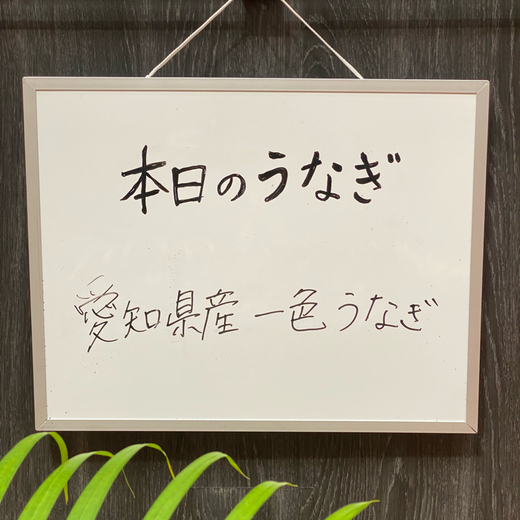 本日のうなぎ
愛知県産 一色うなぎ